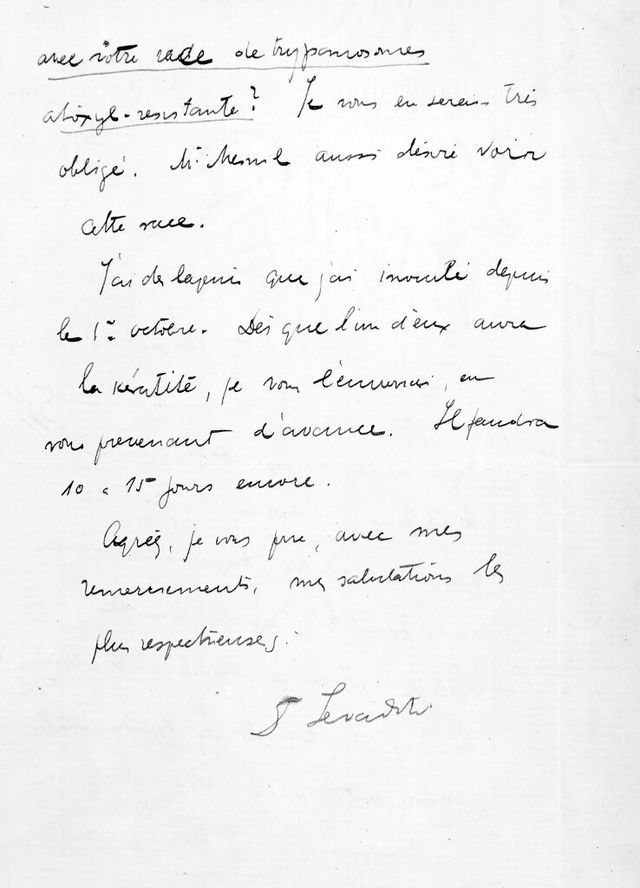 avec votre race de trypanosomes
atoxyl-resistante? Je vous en serais très
obligé. Mr Mesnil aussi désire voir
cette race.
J'ai des lapins que j'ai inoculé depuis
le 1er octobre. Dès que l'un d'eux aura
la kératite, je vous l'enverrai, en
vous prevenant d'avance. Il faudra
10 a 15 jours encore.
Agréez, je vous prie, avec mes
remerciements, mes salutations les
plus respectueuses.
Levaditi